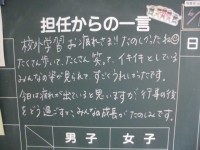 担任からの一言
校外学習お疲れさま!!たのしかったね
たくさん歩いて、たくさん笑って、イキイキとしている
みんなの姿が見られて、すごくうれしかったです。
今日は疲れが出ていると思いますが、行事の後
をどう過ごすか、みんなの成長がたのしみです。
男子 女子
日